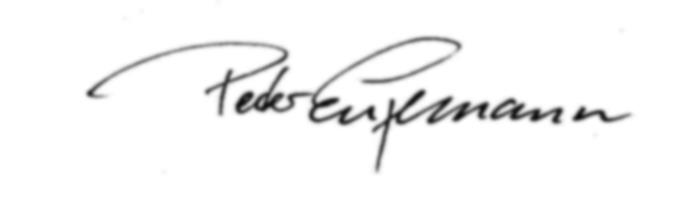 Peter Engelmann